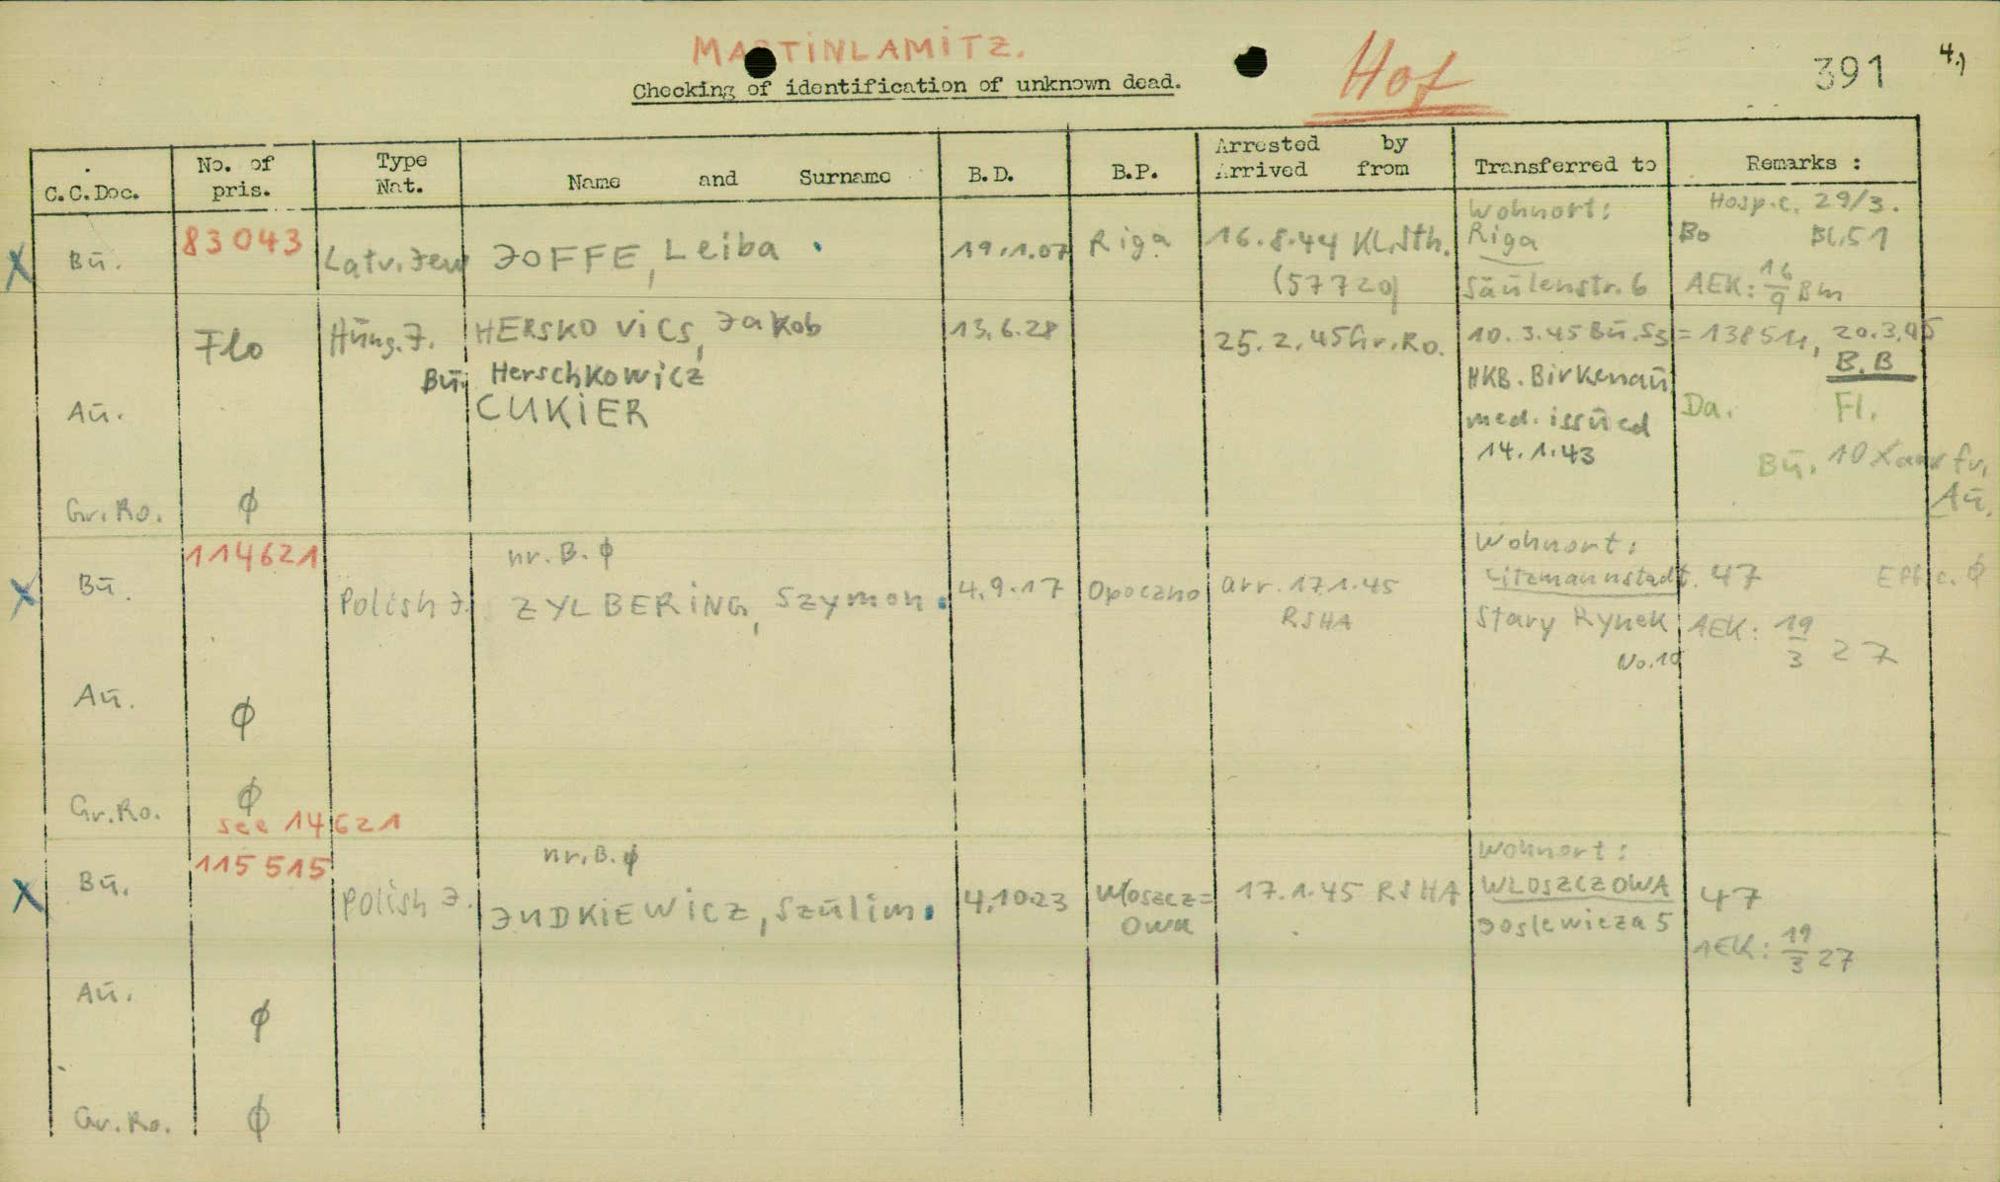 MARTINLAMITZ.
Hof
391
4.)
Checking of identification of unknown dead.
C.C.Doc.
No. of pris.
Type Nat.
Name and Surname
B.D.
B.P.
Arrested by
Arrived from
Transferred to
Remarks :
X Bū. 83043 Latv. Jew JOFFE, Leiba 19.1.07 Riga 16.8.44 Kl.Sth. (57720)
Wohnort: Riga
Säulenstr. 6
Hosp.c. 29/3.
Bo Bl.51
AEK: 16/9 Bm
Flo Hūng. J. HERSKOVICS, Jakob 13.6.28 25.2.45 Gr.Ro. 10.3.45 Bū.S3 = 138514, 20.3.45
Bū. Herschkowicz HKB. Birkenaū B.B
Aū. CUKIER med. issūed Da. Fl.
14.1.43 Bū. 10 X aus fr. Aū.
Gr.Ro. ϕ
114621 nr. B. ϕ Wohnort:
X Bū. Polish J. ZYLBERING, Szymon. 4.9.17 Opoczno arr. 17.1.45 Litzmannstadt. 47 Eff.c. ϕ
RSHA Stary Rynek AEK: 19/3 27
No. 10
Aū. ϕ
Gr.Ro. ϕ
see 14621
115515 nr. B. ϕ Wohnort:
X Bū. Polish J. JUDKIEWICZ, Szūlim. 4.10.23 Wloszcz= 17.1.45 RSHA WLOSZCZOWA 47
owa 5
AEK: 19/3 27
Aū. ϕ
Gr.Ro. ϕ